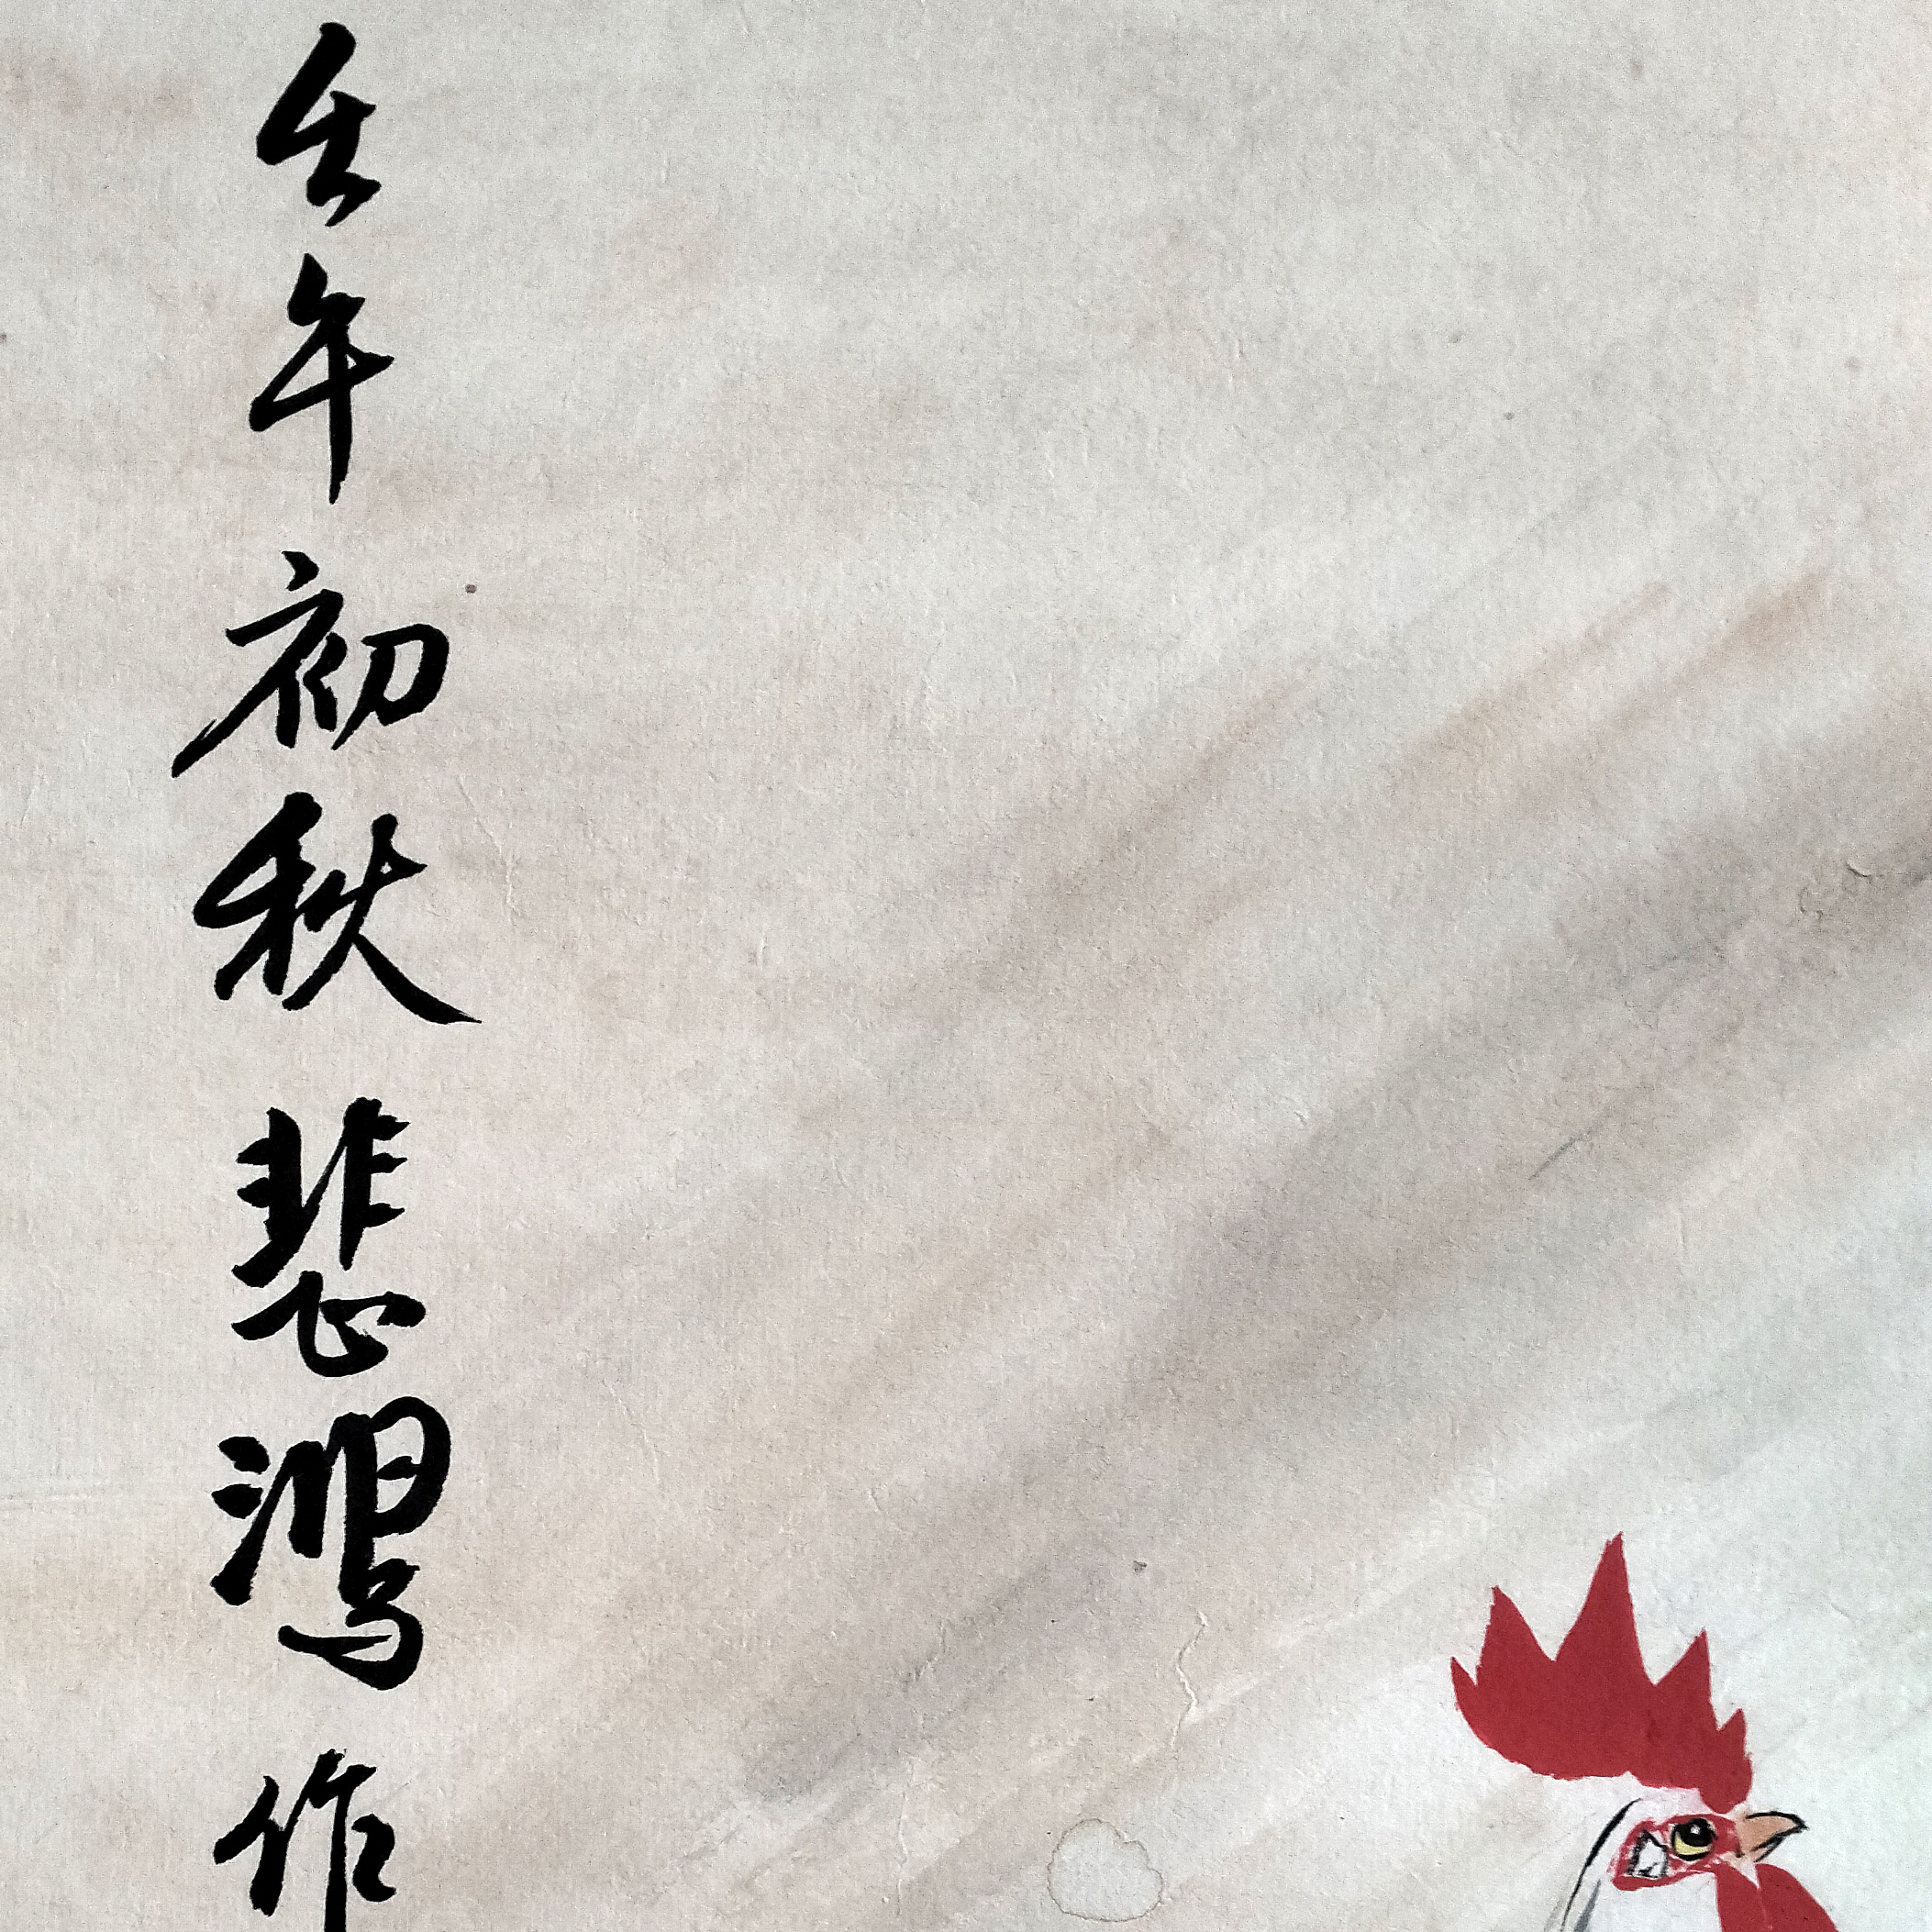 壬午初秋悲鸿作